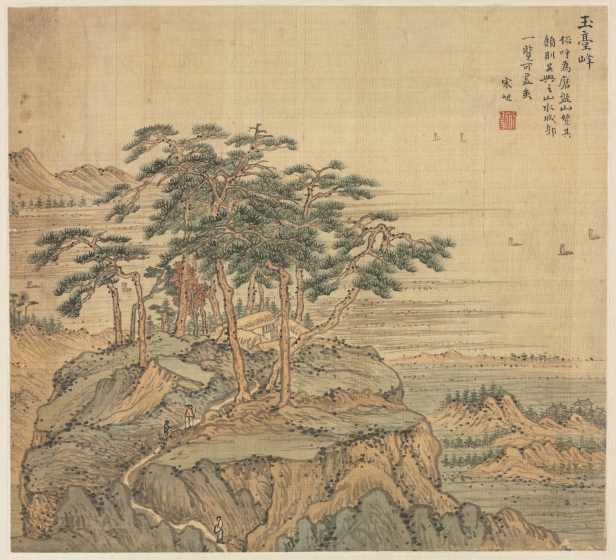 玉臺峰
俗呼為磨盤山登其
顛則吳興之山水城郭
一覽可盡矣
宋旭